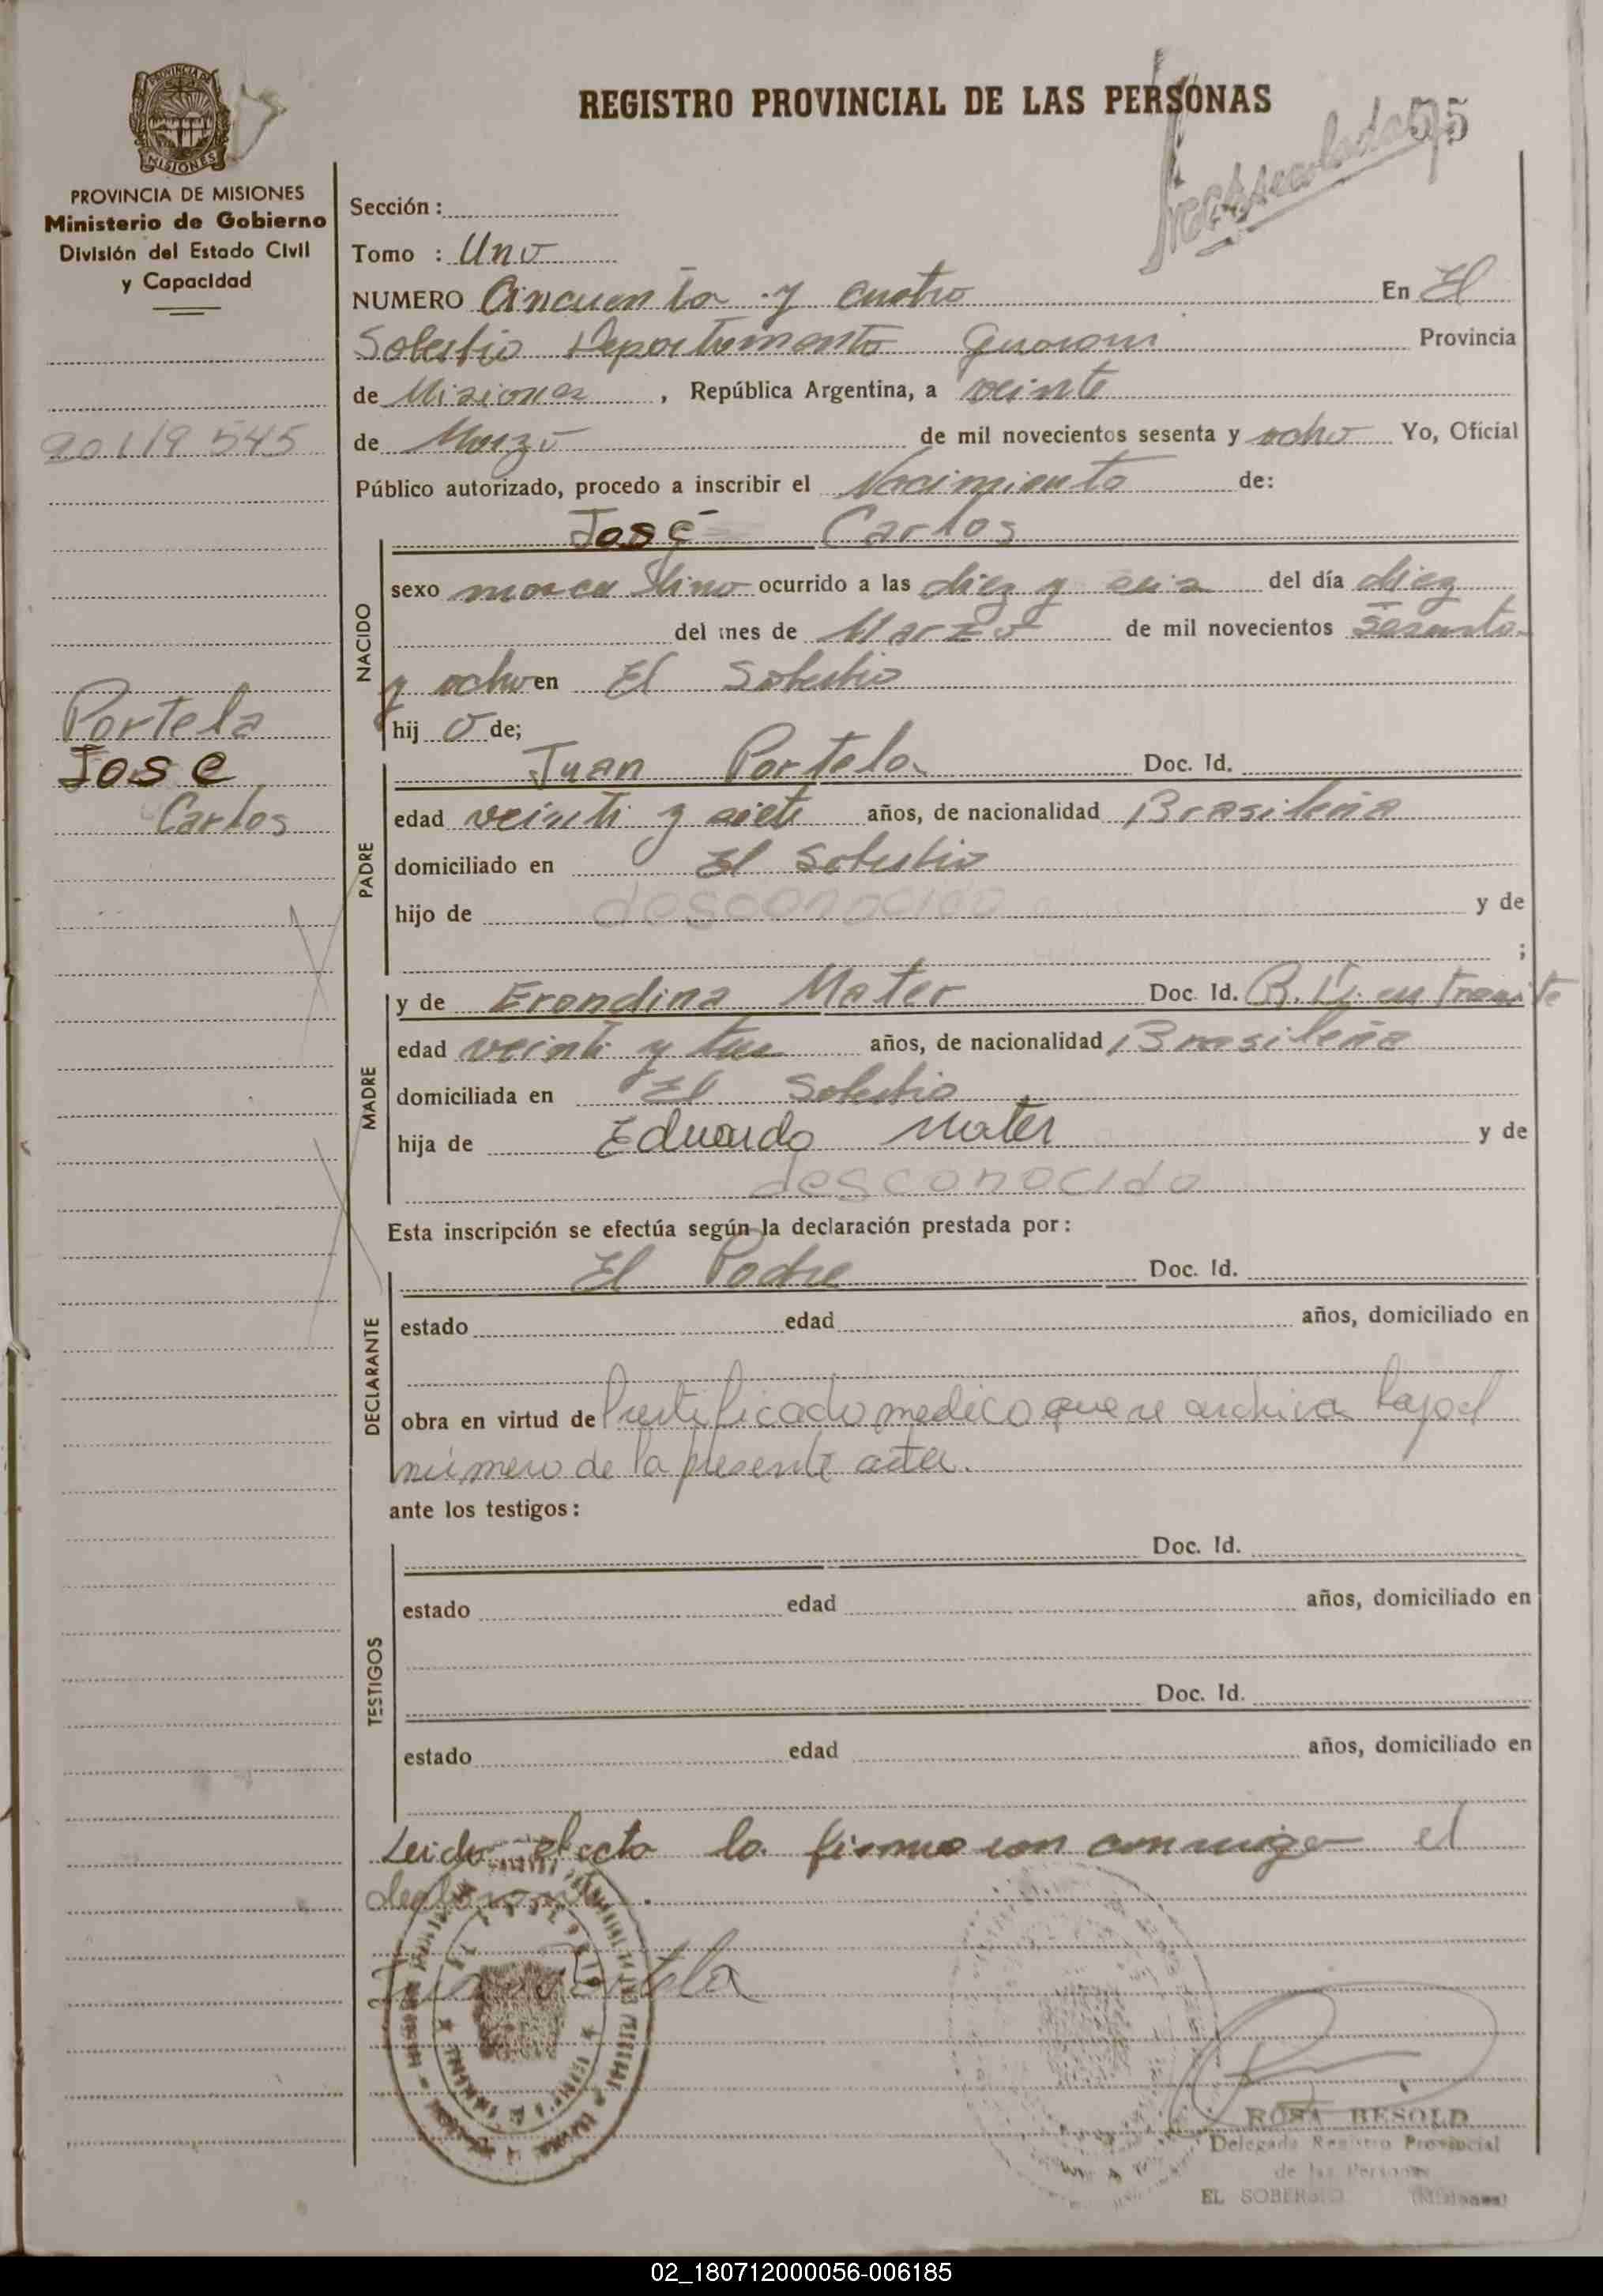 REGISTRO PROVINCIAL DE LAS PERSONAS
55
PROVINCIA DE MISIONES
MISIONES
PROVINCIA DE MISIONES
Ministerio de Gobierno
División del Estado Civil
y Capacidad
Sección :
Tomo : Uno
NUMERO Cincuenta y cuatro En El
Soberbio Departamento Guarani Provincia
de Misiones, República Argentina, a veinte
de Marzo de mil novecientos sesenta y ocho Yo, Oficial
Público autorizado, procedo a inscribir el Nacimiento de:
José Carlos
NACIDO
sexo masculino ocurrido a las diez y seis del día diez
del mes de Marzo de mil novecientos Sesenta
y ocho en El Soberbio
hij o de;
Portela
Jose
Carlos
PADRE
Juan Portela Doc. Id.
edad veinti y siete años, de nacionalidad Brasileña
domiciliado en El Soberbio
hijo de desconocido y de
;
MADRE
y de Erondina Mater Doc. Id. en tramite
edad veinti y tres años, de nacionalidad Brasileña
domiciliada en El Soberbio
hija de Eduardo Mater y de
desconocida
Esta inscripción se efectúa según la declaración prestada por:
DECLARANTE
El Padre Doc. Id.
estado edad años, domiciliado en
obra en virtud de Certificado medico que se archiva bajo el
número de la presente acta.
ante los testigos:
TESTIGOS
Doc. Id.
estado edad años, domiciliado en
Doc. Id.
estado edad años, domiciliado en
Leido el acta la firma con conmigo el
declarante.
Juan Portela
ROSA BESOLD
Delegada Registro Provincial
de las Personas
EL SOBERBIO (Misiones)
02_180712000056-006185